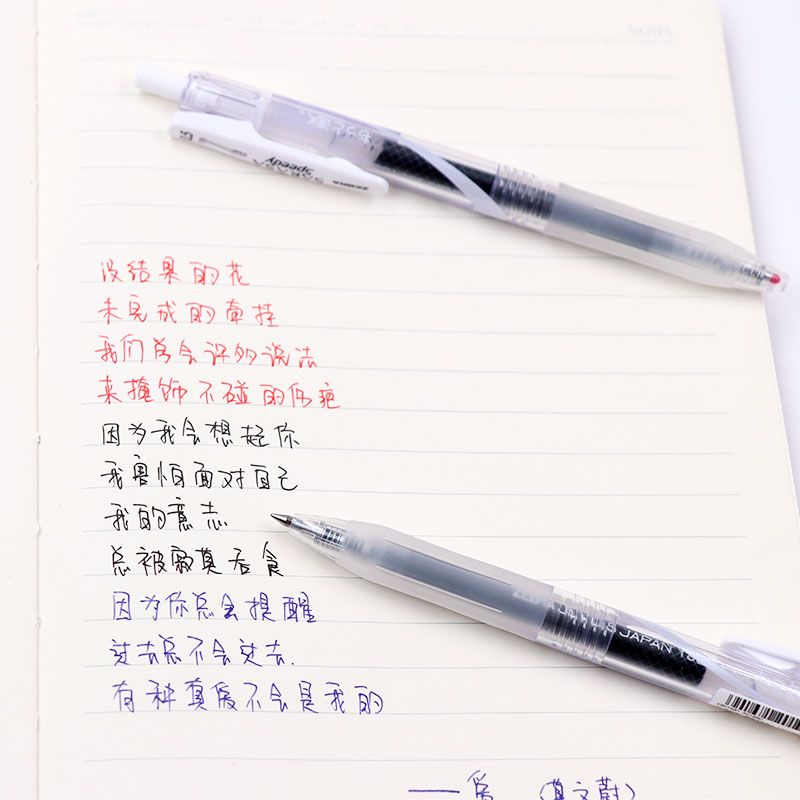 NOTES
もっと速く。
0.5
SARASA
speedy
ZEBRA
没结果的花
未完成的牵挂
我们学会许多说法
来掩饰不碰的伤疤
因为我会想起你
我害怕面对自己
我的意志
总被寂寞吞食
因为你总会提醒
过去总不会过去.
有种真爱不会是我的
JAPAN
——爱 (莫文蔚)